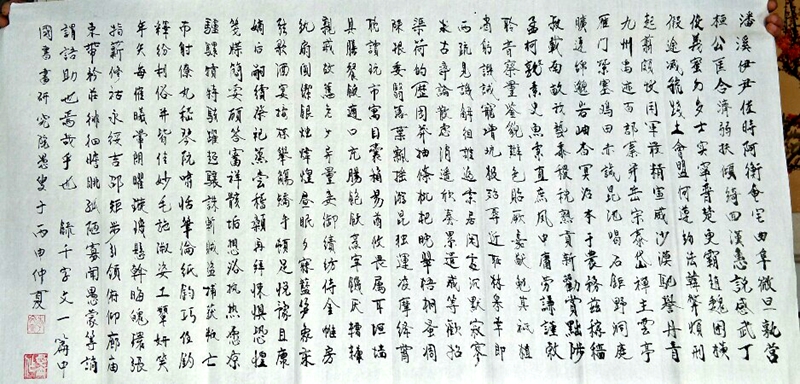 磻溪伊尹佐時阿衡奄宅曲阜微旦孰營
桓公匡合濟弱扶傾綺回漢惠說感武丁
俊乂密勿多士寔寧晉楚更霸趙魏困橫
假途滅虢踐土會盟何遵約法韓弊煩刑
起翦頗牧用軍最精宣威沙漠馳譽丹青
九州禹迹百郡秦并岳宗泰岱禪主雲亭
雁門紫塞鷄田赤城昆池碣石鉅野洞庭
曠遠綿邈岩岫杳冥治本于農務茲稼穡
俶載南畝我藝黍稷稅熟貢新勸賞黜陟
孟軻敦素史魚秉直庶幾中庸勞謙謹敕
聆音察理鑒貌辨色貽厥嘉猷勉其祗植
省躬譏誡寵增抗極殆辱近恥林皋幸即
兩疏見機解組誰逼索居閑處沉默寂寥
求古尋論散慮逍遙欣奏累遣慼謝歡招
渠荷的歷園莽抽條枇杷晚翠梧桐蚤凋
陳根委翳落葉飄搖游鵾獨運凌摩絳霄
耽讀玩市寓目囊箱易輶攸畏屬耳垣墻
具膳餐飯適口充腸飽飫烹宰飢厭糟糠
親戚故舊老少異糧妾御績紡侍巾帷房
紈扇圓潔銀燭煒煌晝眠夕寐藍筍象床
弦歌酒宴接杯舉觴矯手頓足悅豫且康
嫡後嗣續祭祀蒸嘗稽顙再拜悚懼恐惶
箋牒簡要顧答審詳骸垢想浴執熱愿涼
驢騾犢特駭躍超驤誅斬賊盜捕獲叛亡
布射僚丸嵇琴阮嘯恬筆倫紙鈞巧任釣
釋紛利俗并皆佳妙毛施淑姿工顰妍笑
年矢每催曦暉朗曜璇璣懸斡晦魄環照
指薪修祜永綏吉劭矩步引領俯仰廊廟
束帶矜莊徘徊瞻眺孤陋寡聞愚蒙等誚
謂語助也焉哉乎也 錄千字文一篇
國書畫研究院 于丙申仲夏